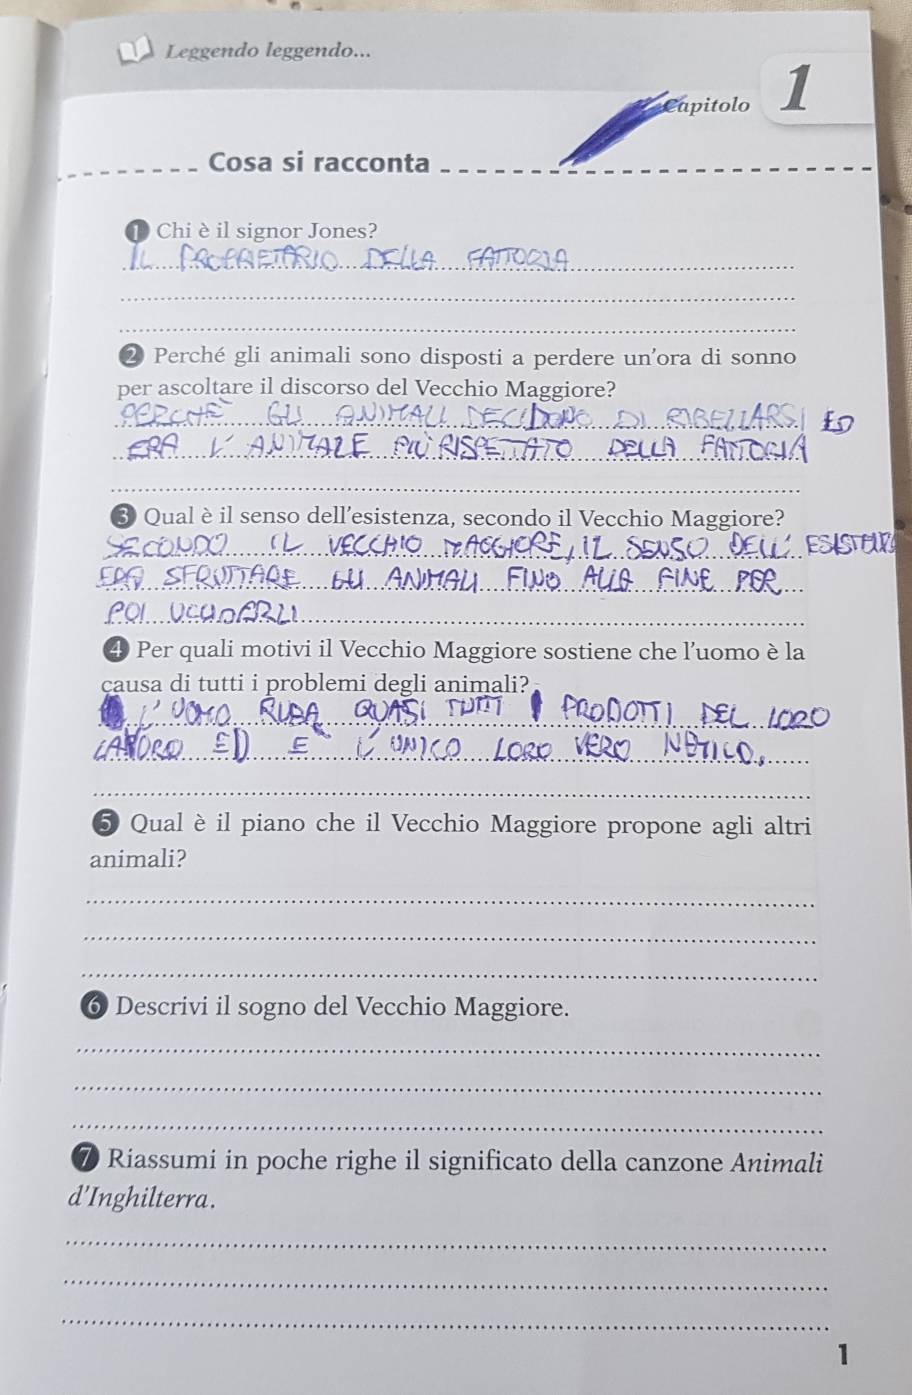 Leggendo leggendo...
Capitolo 1
Cosa si racconta
1 Chi è il signor Jones?
IL PROPRIETARIO DELLA FATTORIA
2 Perché gli animali sono disposti a perdere un'ora di sonno
per ascoltare il discorso del Vecchio Maggiore?
PERCHÈ GLI ANIMALI DECIDONO DI RIBELLARSI ED
ERA L'ANIMALE PIÙ RISPETTATO DELLA FATTORIA
3 Qual è il senso dell'esistenza, secondo il Vecchio Maggiore?
SECONDO IL VECCHIO MAGGIORE, IL SENSO DELL'
ERA SFRUTTARE GLI ANIMALI FINO ALLA FINE PER
POI UCCIDERLI
4 Per quali motivi il Vecchio Maggiore sostiene che l'uomo è la
causa di tutti i problemi degli animali?
L'UOMO RUBA QUASI TUTTI I PRODOTTI DEL LORO
LAVORO ED E' L'UNICO LORO VERO
5 Qual è il piano che il Vecchio Maggiore propone agli altri
animali?
6 Descrivi il sogno del Vecchio Maggiore.
7 Riassumi in poche righe il significato della canzone Animali
d'Inghilterra.
1